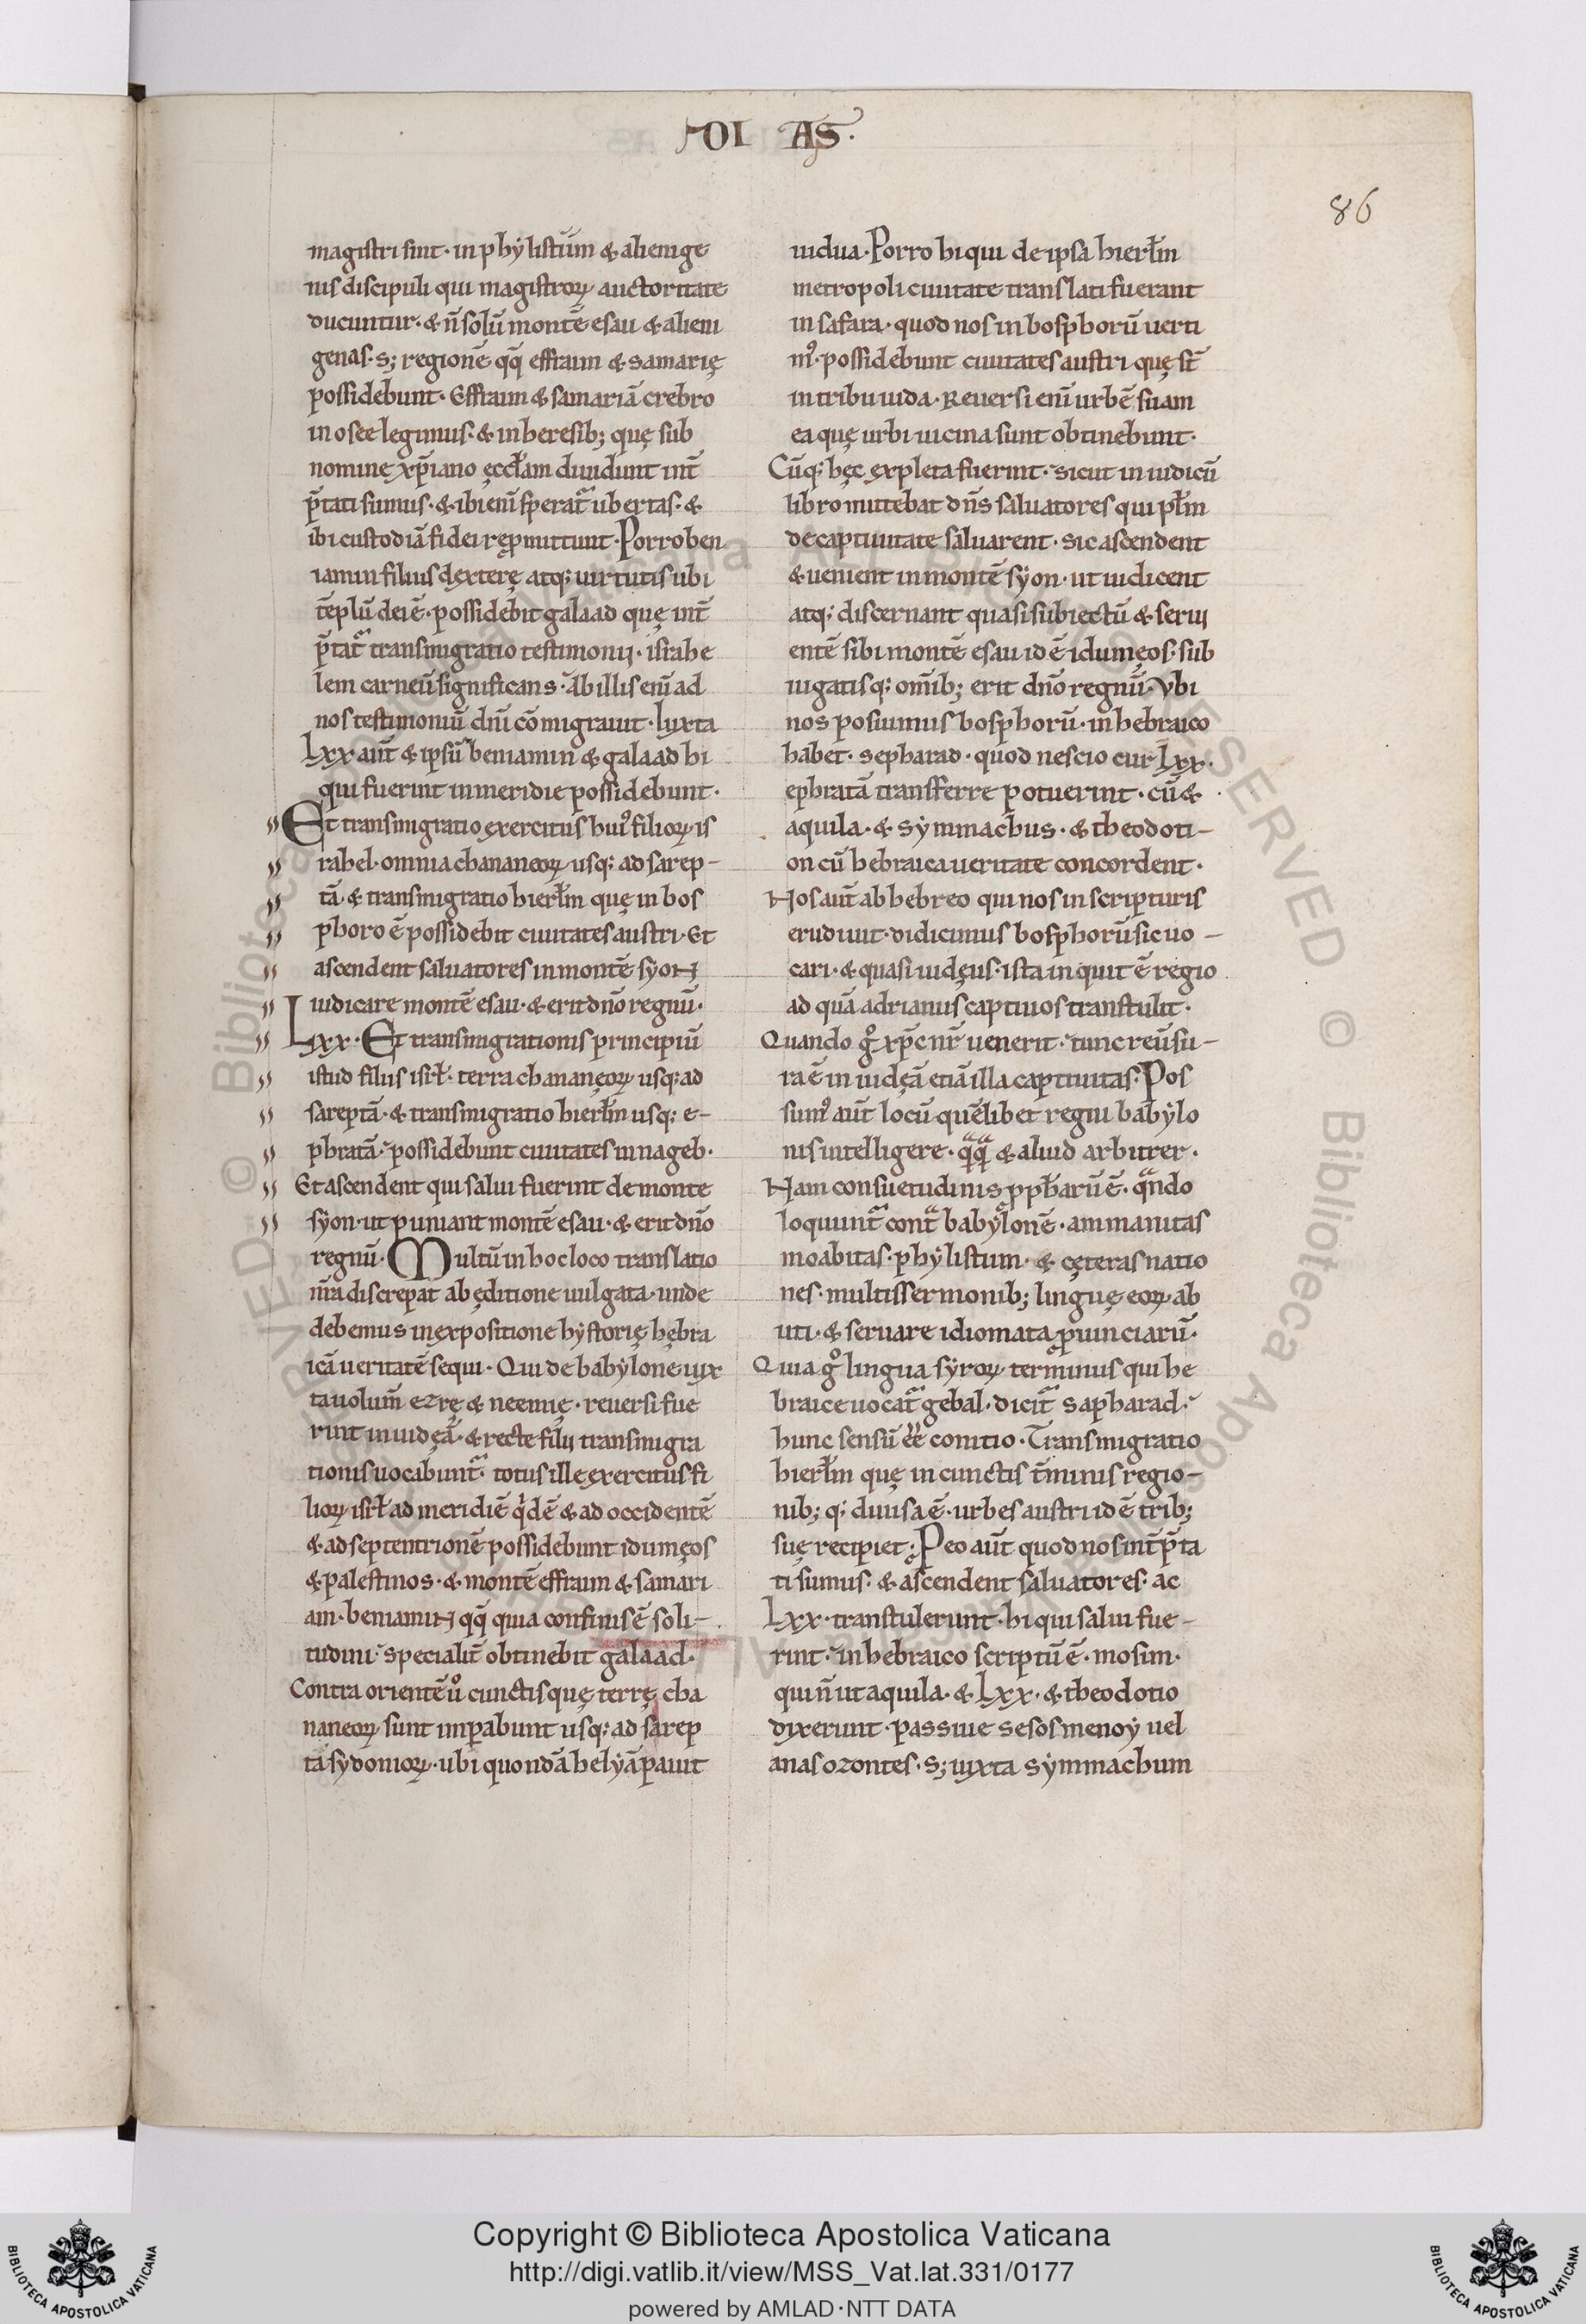 OI AS·
86
magistri sint· in phẏlistiim & alienige
nis discipuli qui magistroꝝ auctoritate
ducuntur· & ñ solũ montẽ esau & alieni
genas· s; regionẽ qq̃ effraim & samarię
possidebunt· Effraim & samariã crebro
in osee legimus· & in heresib; quę sub
nomine xp̃iano ęccłam diuidunt int̃
p̃tati sumus· & ibi eni᷒ speraťˢ ubertas· &
ibi custodiã fidei rep̱mittunt· Porro ben
iamin filius dęxterę atq; uirtutis ubi
tẽplũ dei ẽ· possidebit galaad quę int̃
p̃tat̃ transmigratio testimonij· israhe
lem carneũ significans· ab illis enĩ ad
nos testimoniũ dñi cõmigrauit· Iuxta
Lxx aut̃ & ipsũ beniamin & galaad hi
qui fuerint in meridie possidebunt·
Et transmigratio exercitus hui᷒ filioꝝ is
rahel· omnia chananeoꝝ usq; ad sarep-
tã· & transmigratio hierłm quę in bos
phoro ẽ possidebit ciuitates austri· Et
ascendent saluatores in montẽ sẏon
iudicare montẽ esau· & erit dño regnũ·
Lxx· Et transmigrationis principiũ
istud filiis isrł· terra chananęoꝝ usq; ad
sareptã· & transmigratio hierłm usq; e-
phratã· possidebunt ciuitates in nageb·
Et ascendent qui salui fuerint de monte
sẏon· ut puniant montẽ esau· & erit dño
regnũ· Multũ in hoc loco translatio
nr̃a discrepat ab ęditione uulgata· unde
debemus in expositione hẏstorię hębra
icã ueritatẽ sequi· Qui de babẏlone iux
ta uolum̃ ezrę & neemię· reuersi fue
rint in iudęã· & recte filij transmigra
tionis uocabunt̃· totus ille exercitus fi
lioꝝ isrł ad meridiẽ qͥdẽ & ad occidentẽ
& ad septentrionẽ possidebunt idumęos
& palestinos· & montẽ effraim & samari
am· beniamin qq̃ quia confinis ẽ soli-
tudini· specialit̃ obtinebit galaad·
Contra orientẽ uͦ cunctis quę terrę cha
naneoꝝ sunt imꝑabunt usq; ad sarep
tã sẏdonioꝝ· ubi quondã helẏã pauit
uidua· Porro hi qui de ipsa hierłm
metropoli ciuitate translati fuerant
in safara· quod nos in bosphorũ uerti
m᷒· possidebunt ciuitates austri quę st̃
in tribu iuda· Reuersi enĩ urbẽ suam
ea quę urbi uicina sunt obtinebunt·
Cũq; hęc expleta fuerint· sicut in iudicũ
libro mittebat dñs saluatores qui płm
de captiuitate saluarent· sic ascendent
& uenient in montẽ sẏon· ut iudicent
atq; discernant quasi subiectũ & serui
entẽ sibi montẽ esau id ẽ idumęos· sub
iugatisq; omĩb; erit dño regnũ· Vbi
nos posuimus bosphorũ· in hebraico
habet· sepharad· quod nescio cur Lxx·
ephratã transferre potuerint· cũ &
aquila· & sẏmmachus· & theodoti-
on cũ hebraica ueritate concordent·
Nos aut̃ ab hebreo qui nos in scripturis
erudiuit· didicimus bosphorũ sic uo-
cari· & quasi iudęus· ista inquit ẽ regio
ad quã adrianus captiuos transtulit·
Quando gͦ xp̃c nr̃ uenerit· tunc reũsu-
ra ẽ in iudęã etiã illa captiuitas· Pos
sum᷒ aut̃ locũ quẽlibet regni babẏlo
nis intelligere· qͣqͣ & aliud arbitrer·
Nam consuetudinis pphaꝝ ẽ· qͣndo
loquunt̃ cont̃ babẏlonẽ· ammanitas
moabitas· phẏlistiim· & cęteras natio
nes· multis sermonib; linguę eoꝝ ab
uti· & seruare idiomata ꝓuinciarũ·
Quia gͦ lingua sẏroꝝ· terminus qui he
braice uocat̃ gebal· dicit̃ sapharad·
hunc sensũ ẽẽ conitio· Transmigratio
hierłm quę in cunctis t̃minis regio-
nib; q; diuisa ẽ· urbes austri id ẽ trib;
suę recipiet· P eo aut̃ quod nos int̃p̃ta
ti sumus· & ascendent saluatores· ac
Lxx· transtulerunt· hi qui salui fue-
rint· in hebraico scriptũ ẽ· mosim·
qui ñ ut aquila· & Lxx· & theodotio
dixerunt· passiue sesosmenoẏ uel
anasozontes· s; iuxta sẏmmachum
Copyright © Biblioteca Apostolica Vaticana
http://digi.vatlib.it/view/MSS_Vat.lat.331/0177
powered by AMLAD·NTT DATA
BIBLIOTECA APOSTOLICA VATICANA
BIBLIOTECA APOSTOLICA VATICANA